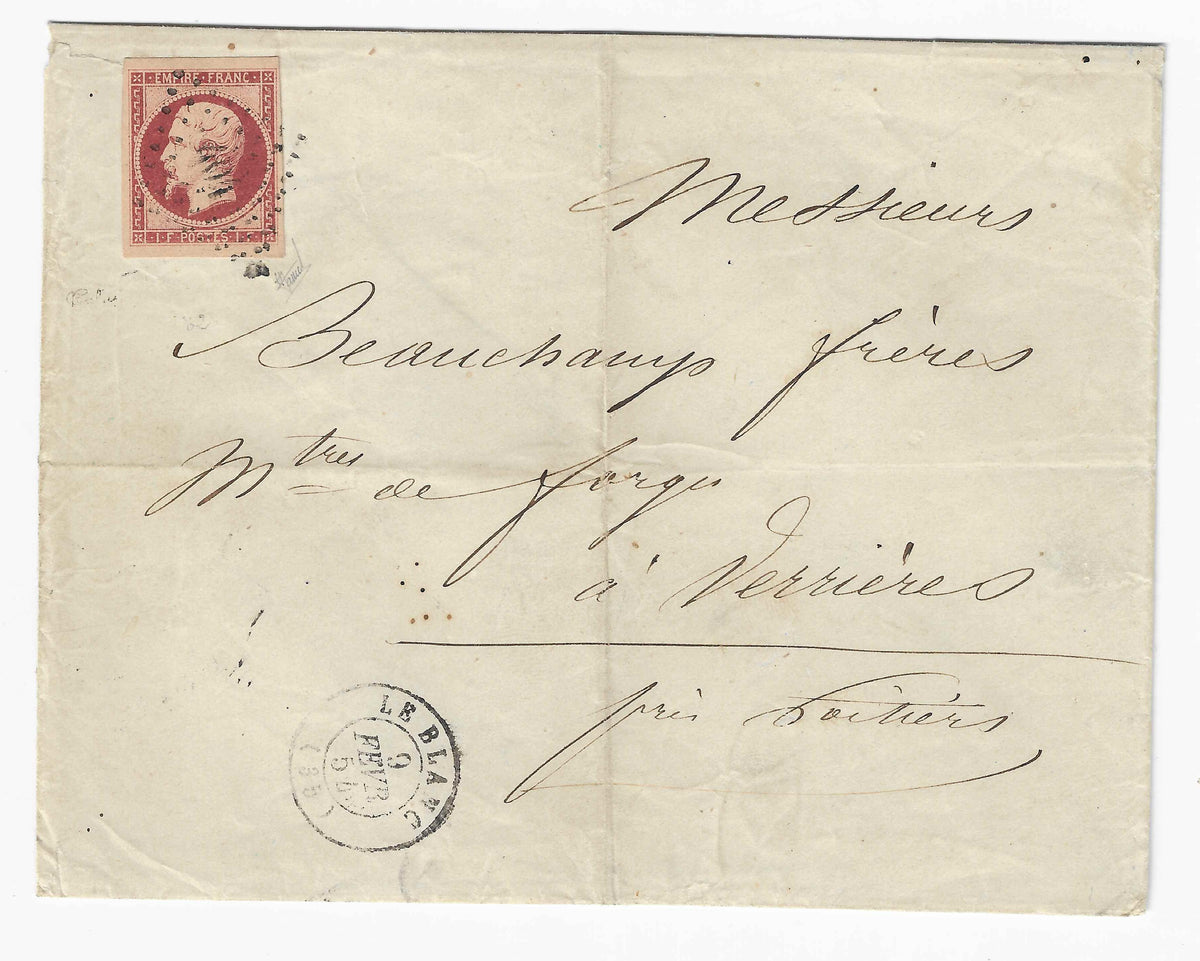 EMPIRE FRANC
1 F POSTES 1 F
Messieurs
Beauchamp frères
Mtres de forges
à Verrières
près Poitiers
LE BLANC
9
FEVR
56
(35)